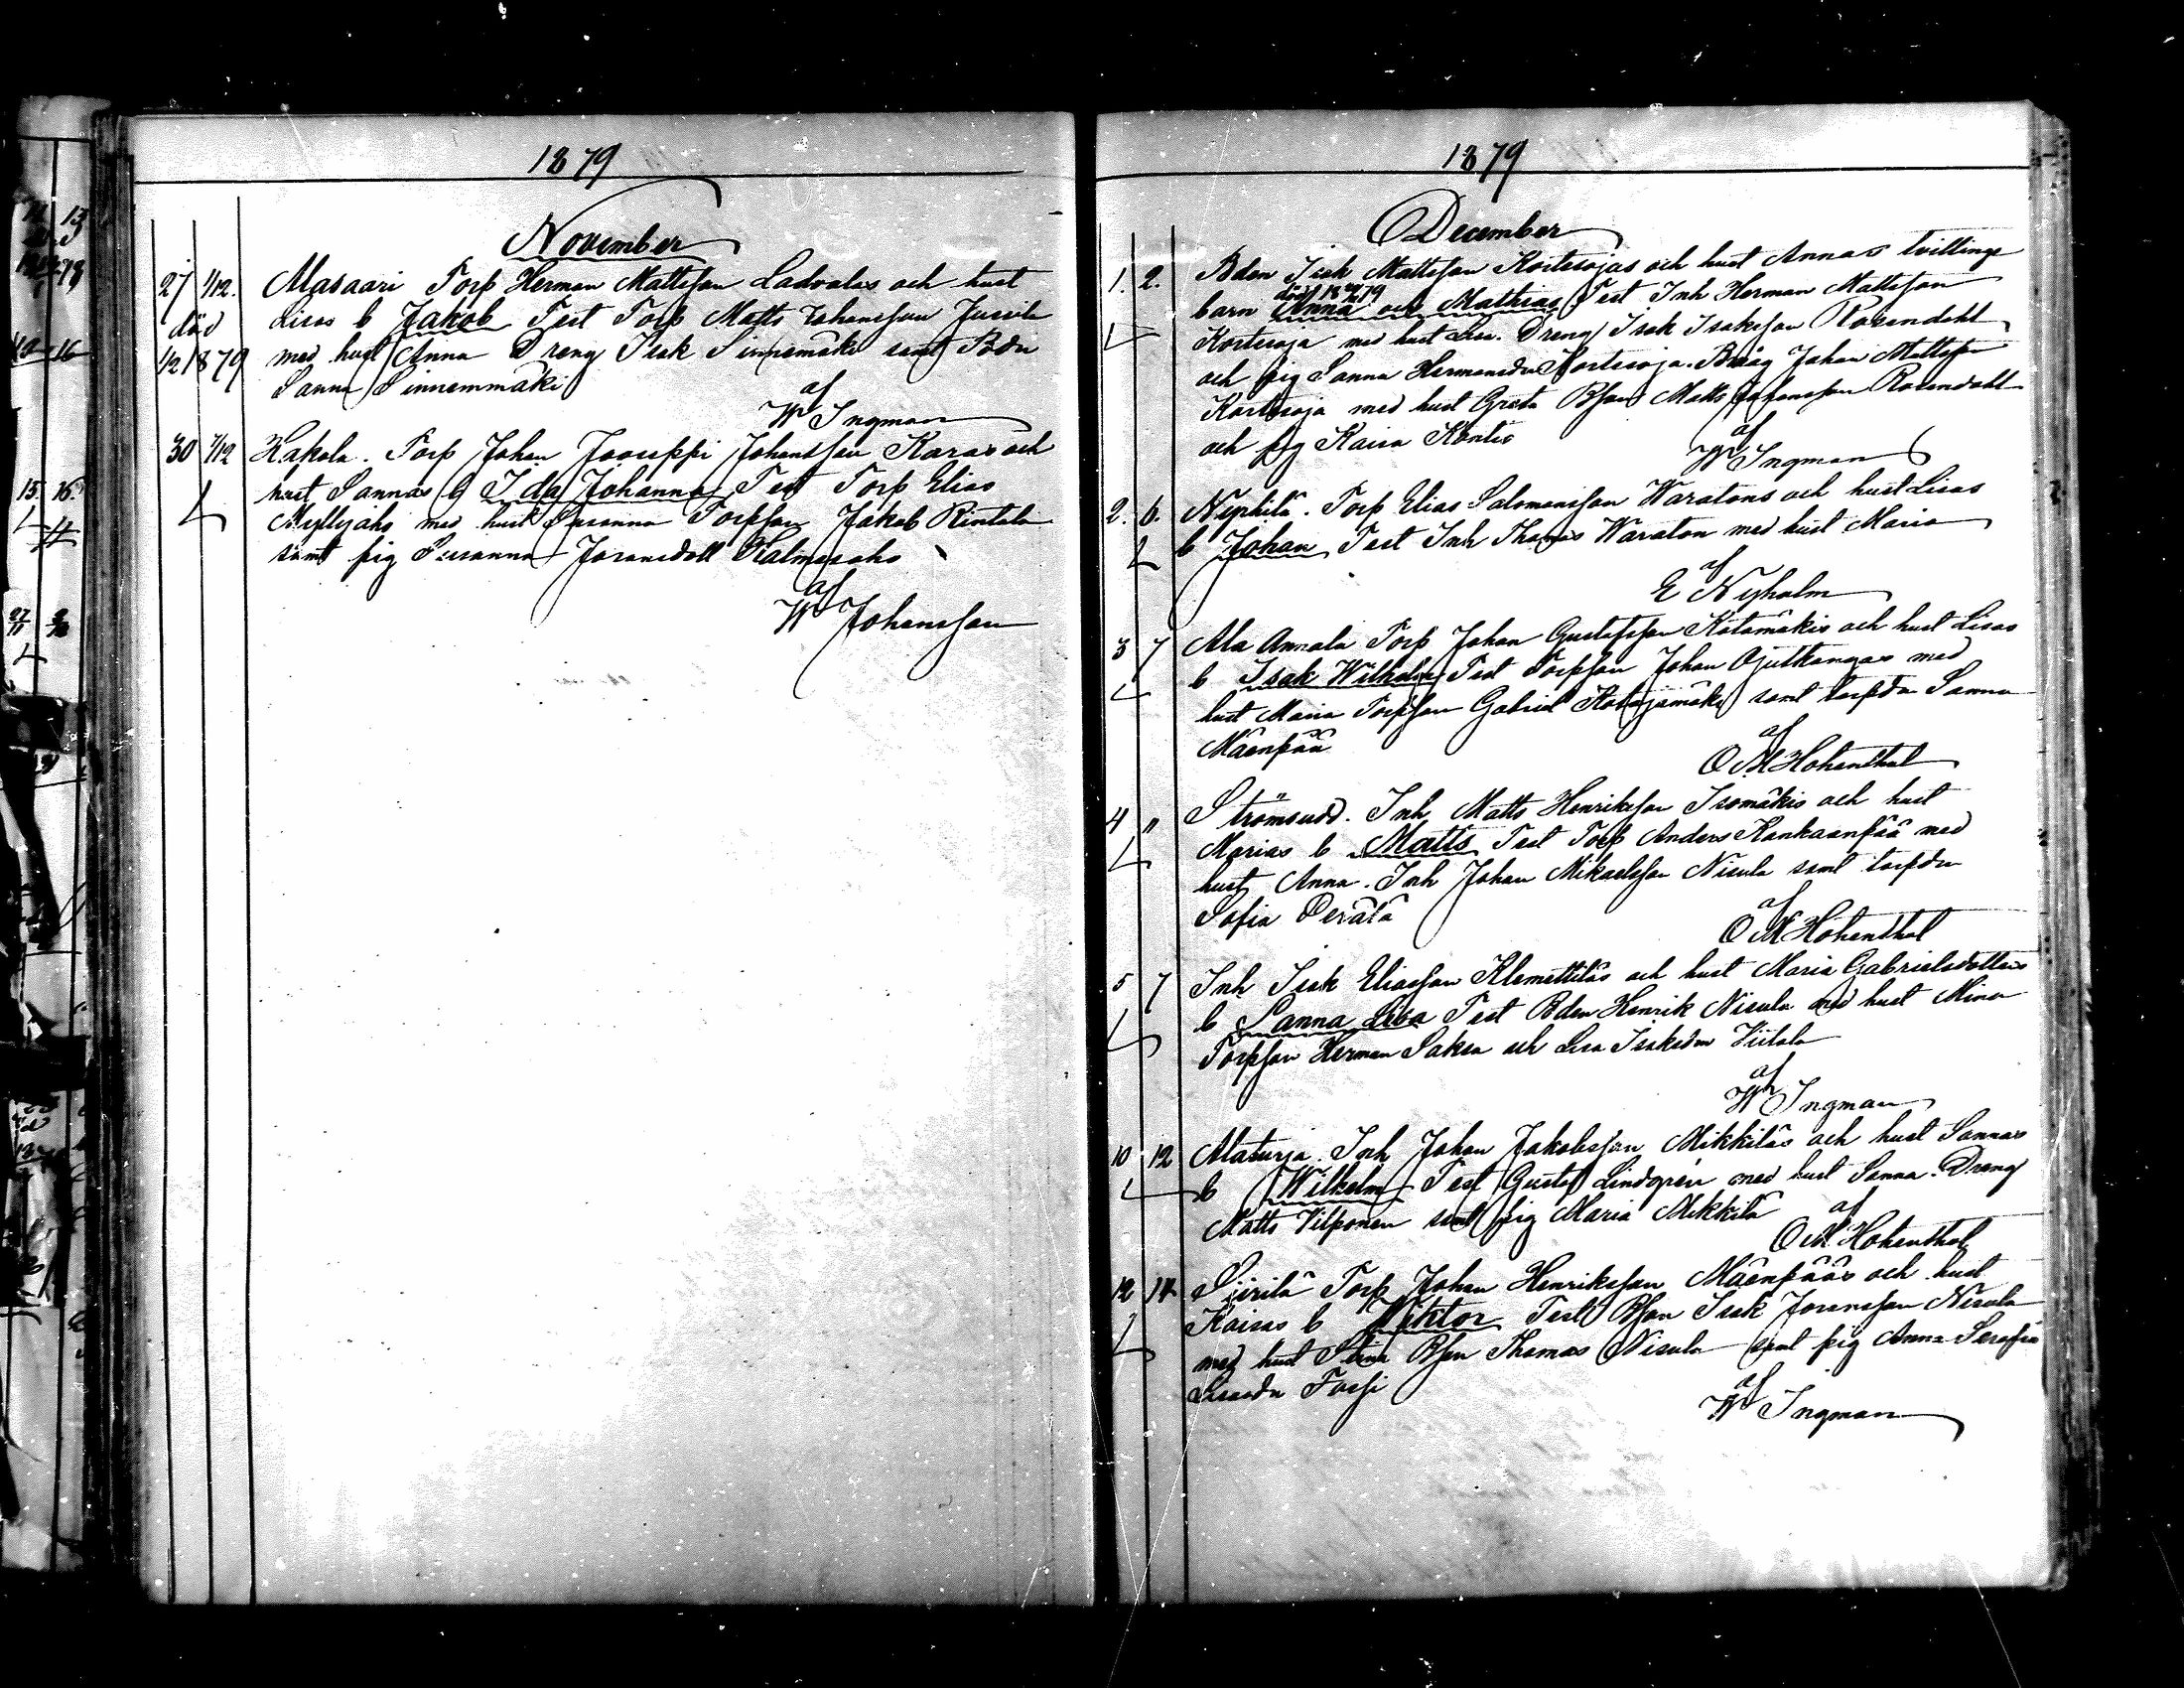 1879
November
27 1/12. Alasaari Torp Herman Mattsson Ladvalas och hust
död Lisas b Jakob Test Torp Matts Johansson Jussila
1/12 1879 med hust Anna Dreng Isak Sinnemäki samt Bdtr
Sanna Sinnemmäki
af
W Ingman
30 7/12 Hakola. Torp Johan Jooseppi Johansson Karas och
hust Sannas b Ida Johanna Test Torp Elias
Myllyaho med hust Susanna Torpson Jakob Rintala
samt pig Susanna Halmesaho
af
W Johansson
1879
December
1. 2. Bden Isak Mattsson Kortesojas och hust Annas tvillinge
död 18 79
barn Anna och Mathias Test Inh Herman Mattsson
Kortesoja med hust Lisa. Dreng Isak Isaksson Rosendahl
och pig Sanna Hermansdr Kortesoja. Johan Mattsson
Kortesoja med hust Greta Bson Matts Johansson Rosendahl
och pig Kaisa Kontio
af
W Ingman
2. 6. Torp Elias Salomonsson Waratons och hust Lisas
b Johan Test Inh Thomas Waraton med hust Maria
af
E Nyholm
3 7 Ala Annala Torp Johan Gustafsson Katamäkis och hust Lisas
b Isak Wilhelm Test Torpson Johan Ojutkangas med
hust Maria Torpson Gabriel Katajamäki samt torpdtr Sanna
Mäenpää
af
O M Hohenthal
4 " Strömsudd. Inh Matts Henriksson Isomäkis och hust
Marias b Matts Test Torp Anders Kankaanpää med
hust Anna. Inh Johan Mikaelsson Nisula samt torpdtr
Sofia Perälä
af
O M Hohenthal
5 7 Inh Isak Eliasson Klemettiläs och hust Maria Gabrielsdotters
b Sanna Lisa Test Bden Henrik Nisula med hust Mina
Torpson Herman Saksa och Lisa Isaksdtr Viitala
af
W Ingman
10 12 Alaturja. Inh Johan Jakobsson Mikkiläs och hust Sannas
b Wilhelm Test Gustaf Lindgren med hust Sanna. Dreng
Matts Vilponen samt pig Maria Mikkilä
af
O M Hohenthal
12 14 Torp Johan Henriksson Mäenpääs och hust
Kaisas b Wiktor Test Bson Isak Nisula
med hust Stina Bson Thomas Nisula samt pig Anna Serafia
af
W Ingman